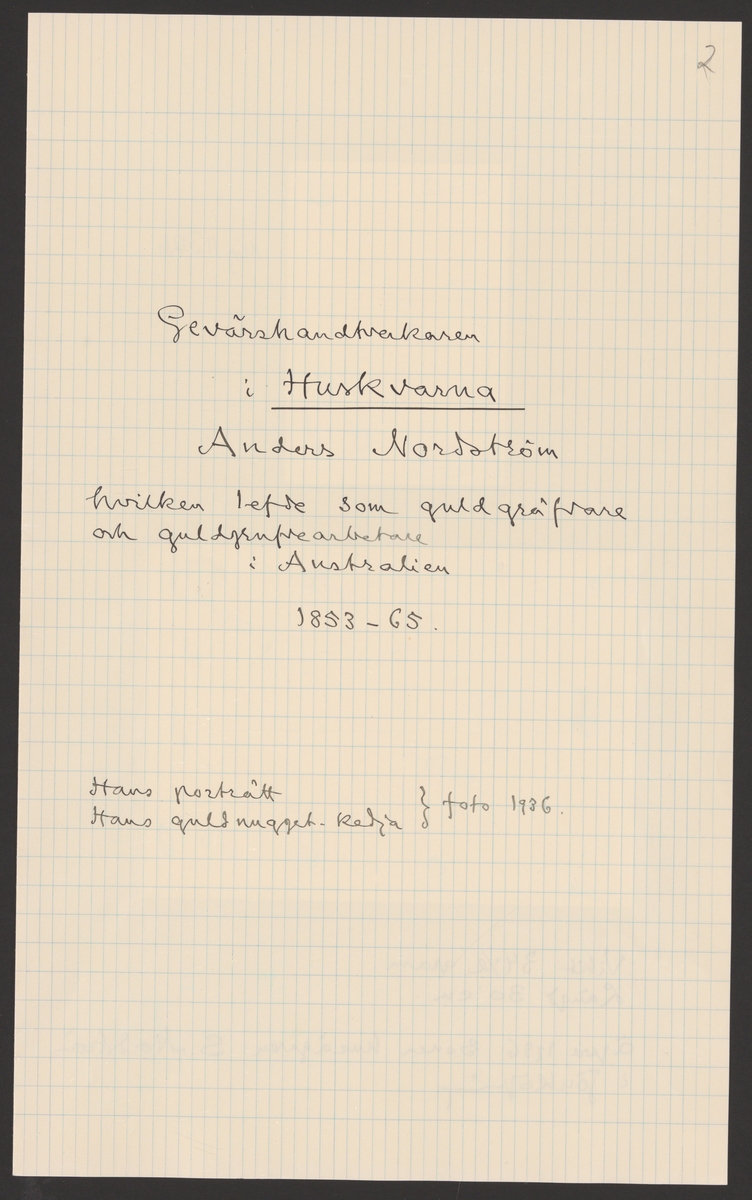 2
Gevärshandtverkaren
i Huskvarna
Anders Nordström
hvilken lefde som guldgräfvare
och guldgrufvearbetare
i Australien
1853-65.
Hans porträtt
Hans guldnugget-kedja } foto 1936.